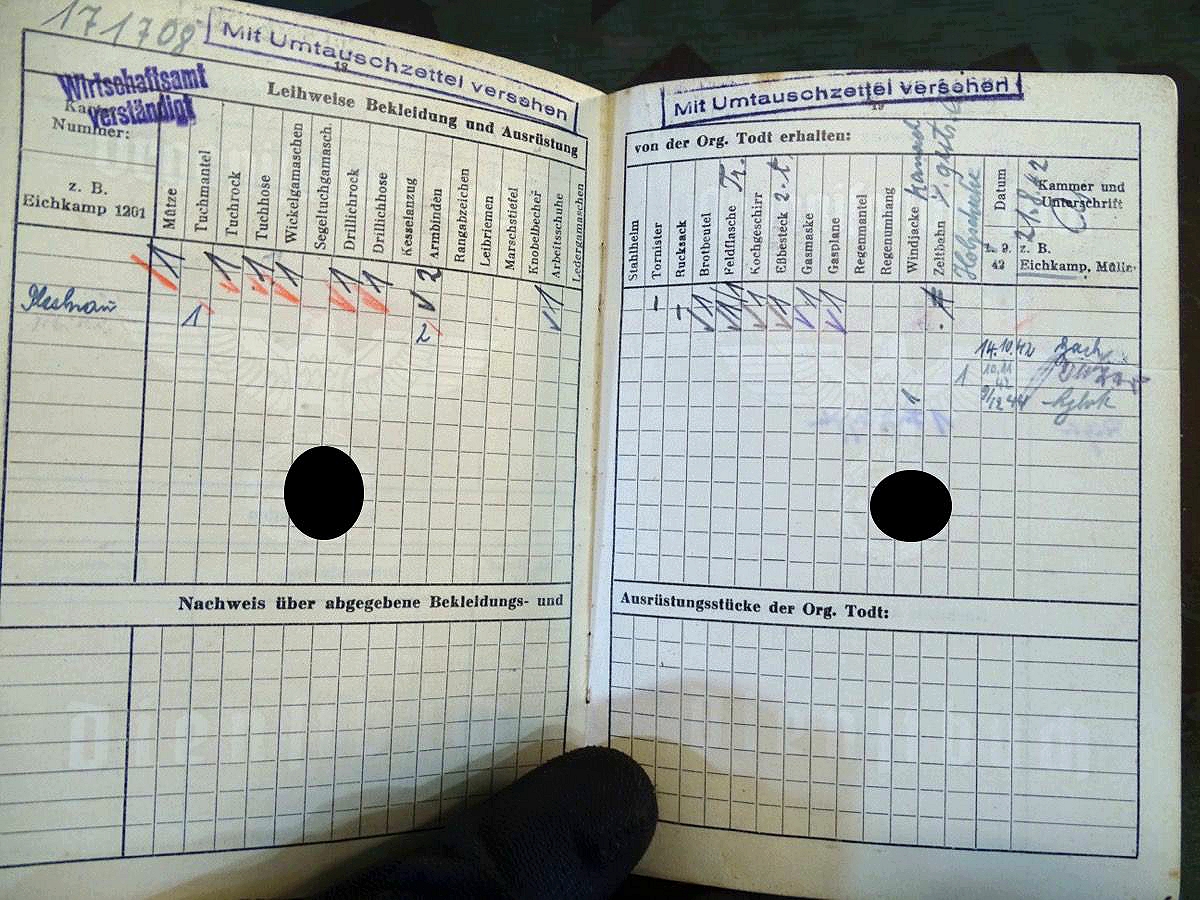 171708
Mit Umtauschzettel versehen
18
Wirtschaftsamt
verständigt
Leihweise Bekleidung und Ausrüstung
Nummer:
z. B.
Eichkamp 1201
Mütze
Tuchmantel
Tuchrock
Tuchhose
Wickelgamaschen
Segeltuchgamasch.
Drillichrock
Drillichhose
Kesselanzug
Armbinden
Rangabzeichen
Leibriemen
Marschstiefel
Knobelbecher
Arbeitsschuhe
Ledergamaschen
1 1 1 1 1 1 2 1
1 2
Nachweis über abgegebene Bekleidungs- und
Mit Umtauschzettel versehen
19
von der Org. Todt erhalten:
Stahlhelm
Tornister
Rucksack
Brotbeutel
Feldflasche Tr.
Kochgeschirr
Eßbesteck 2-t.
Gasmaske
Gasplane
Regenmantel
Regenumhang
Windjacke
Zeltbahn
Datum
21.8.42
Kammer und
Unterschrift
1. 9.
42
z. B.
Eichkamp, Müller
- - 1 1 1 1 1 1
14.10.42
1 10.11
42
1 9/12 44
Ausrüstungsstücke der Org. Todt: